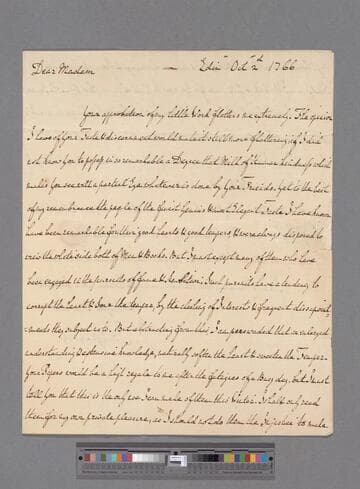 Dear Madam — Edinr Octr 2d 1766
Your approbation of my little Work flatters me extremely. The opinion
I have of your Taste & discernment would make it still more flattering if I did
not know you to possess in so remarkable a Degree that Milk of human kindness which
makes you see with a partial Eye whatever is done by your Friends, yet to the best
of my remembrance the people of the finest Genius & most Elegant Taste I have known
have been remarkable for their good hearts & good tempers, & were always disposed to
view the best side both of Men & Books. But I must except many of them who have
been engaged in the pursuits of fame & Ambition. Such pursuits have a tendency to
corrupt the heart & sour the temper, by the clashing of Interests & frequent disappoint-
ments they subject us to. But abstracting from this, I am persuaded that an enlarged
understanding & extensive knowledge, naturally soften the heart & sweeten the Temper.
Your Papers would be a high regale to me after the fatigues of a Busy day, but I must
tell you that this is the only use I can make of them this Winter. I shall only read
them for my own private pleasure, as I should not do them the Injustice to make